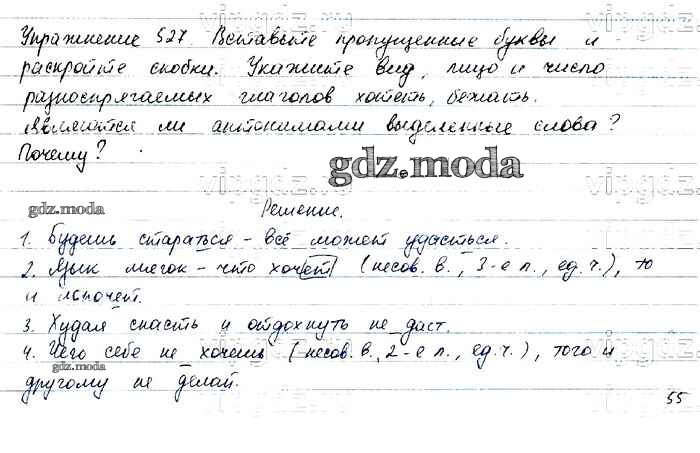 Упражнение 527. Вставьте пропущенные буквы и
раскройте скобки. Укажите вид, лицо и число
разноспрягаемых глаголов хотеть, бежать.
Являются ли антонимами выделенные слова?
Почему?
gdz.moda
gdz.moda
Решение.
1. Будешь стараться - всё может удасться.
2. Язык мягок - что хочет (несов. в., 3-е л., ед. ч.), то
и лопочет.
3. Худая снасть и отдохнуть не даст.
4. Чего себе не хочешь (несов. в., 2-е л., ед. ч.), того и
gdz.moda
другому не делай.
55